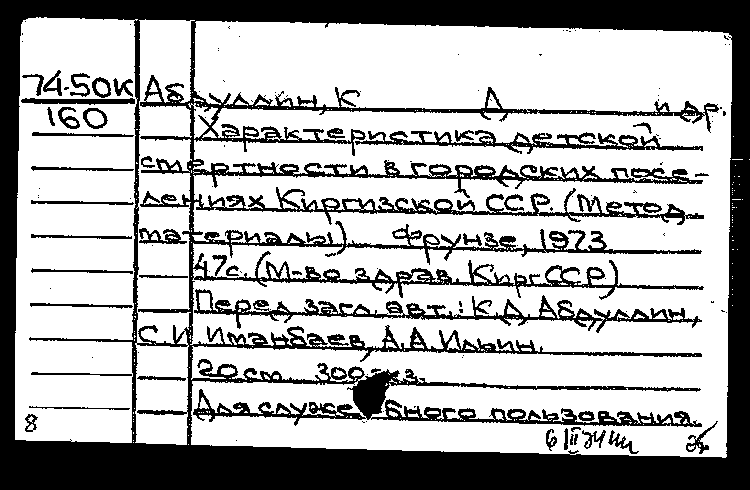 74-50К Абдуллин, К Д и др.
160
Характеристика детской
смертности в городских посе-
лениях Киргизской ССР. (Метод.
материалы). Фрунзе, 1973
47с. (М-во здрав. Кирг ССР)
Перед загл. авт.: К.Д. Абдуллин,
С.И Иманбаев, А.А. Ильин.
20 см. 300 экз.
Для служебного пользования.
8